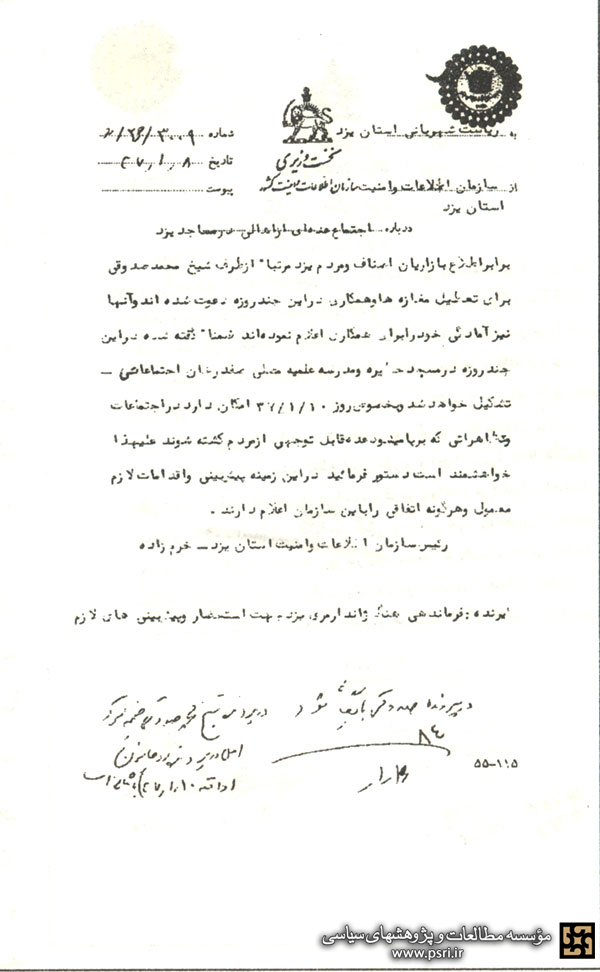 به ریاست شهربانی استان یزد
شماره ۳۰۰۹/
نخست وزیری
تاریخ ۸/۱/
از سازمان اطلاعات و امنیت سازمان اطلاعات و امنیت کشور
پیوست
استان یزد
درباره اجتماع عده‌ای از اهالی در مساجد یزد
برابر اطلاع بازاریان اصناف و مردم یزد مرتبا" از طرف شیخ محمد صدوقی
برای تعطیل مغازه ها و همکاری در این چند روزه دعوت شده اند و آنها
نیز آمادگی خود را برای همکاری اعلام نموده‌اند ضمنا" گفته شده در این
چند روزه در مسجد حظیره و مدرسه علمیه محلی صفدرخان اجتماعاتی –
تشکیل خواهد شد و بخصوص روز ۳۷/۱/۱۰ امکان دارد در اجتماعات
و تظاهراتی که برپا میشود عده قابل توجهی از مردم کشته شوند علیهذا
خواهشمند است دستور فرمائید در این زمینه پیش‌بینی و اقدامات لازم
معمول و هرگونه اتفاقی را باین سازمان اعلام دارند .
رئیس سازمان اطلاعات و امنیت استان یزد – خرم زاده
گیرنده : فرماندهی هنگ ژاندارمری یزد جهت استحضار و پیش‌بینی های لازم
در پرونده صدوقی بایگانی شود
در پرونده شیخ محمد صدوقی
۵۵-۱۱۵
مؤسسه مطالعات و پژوهشهای سیاسی
www.psri.ir